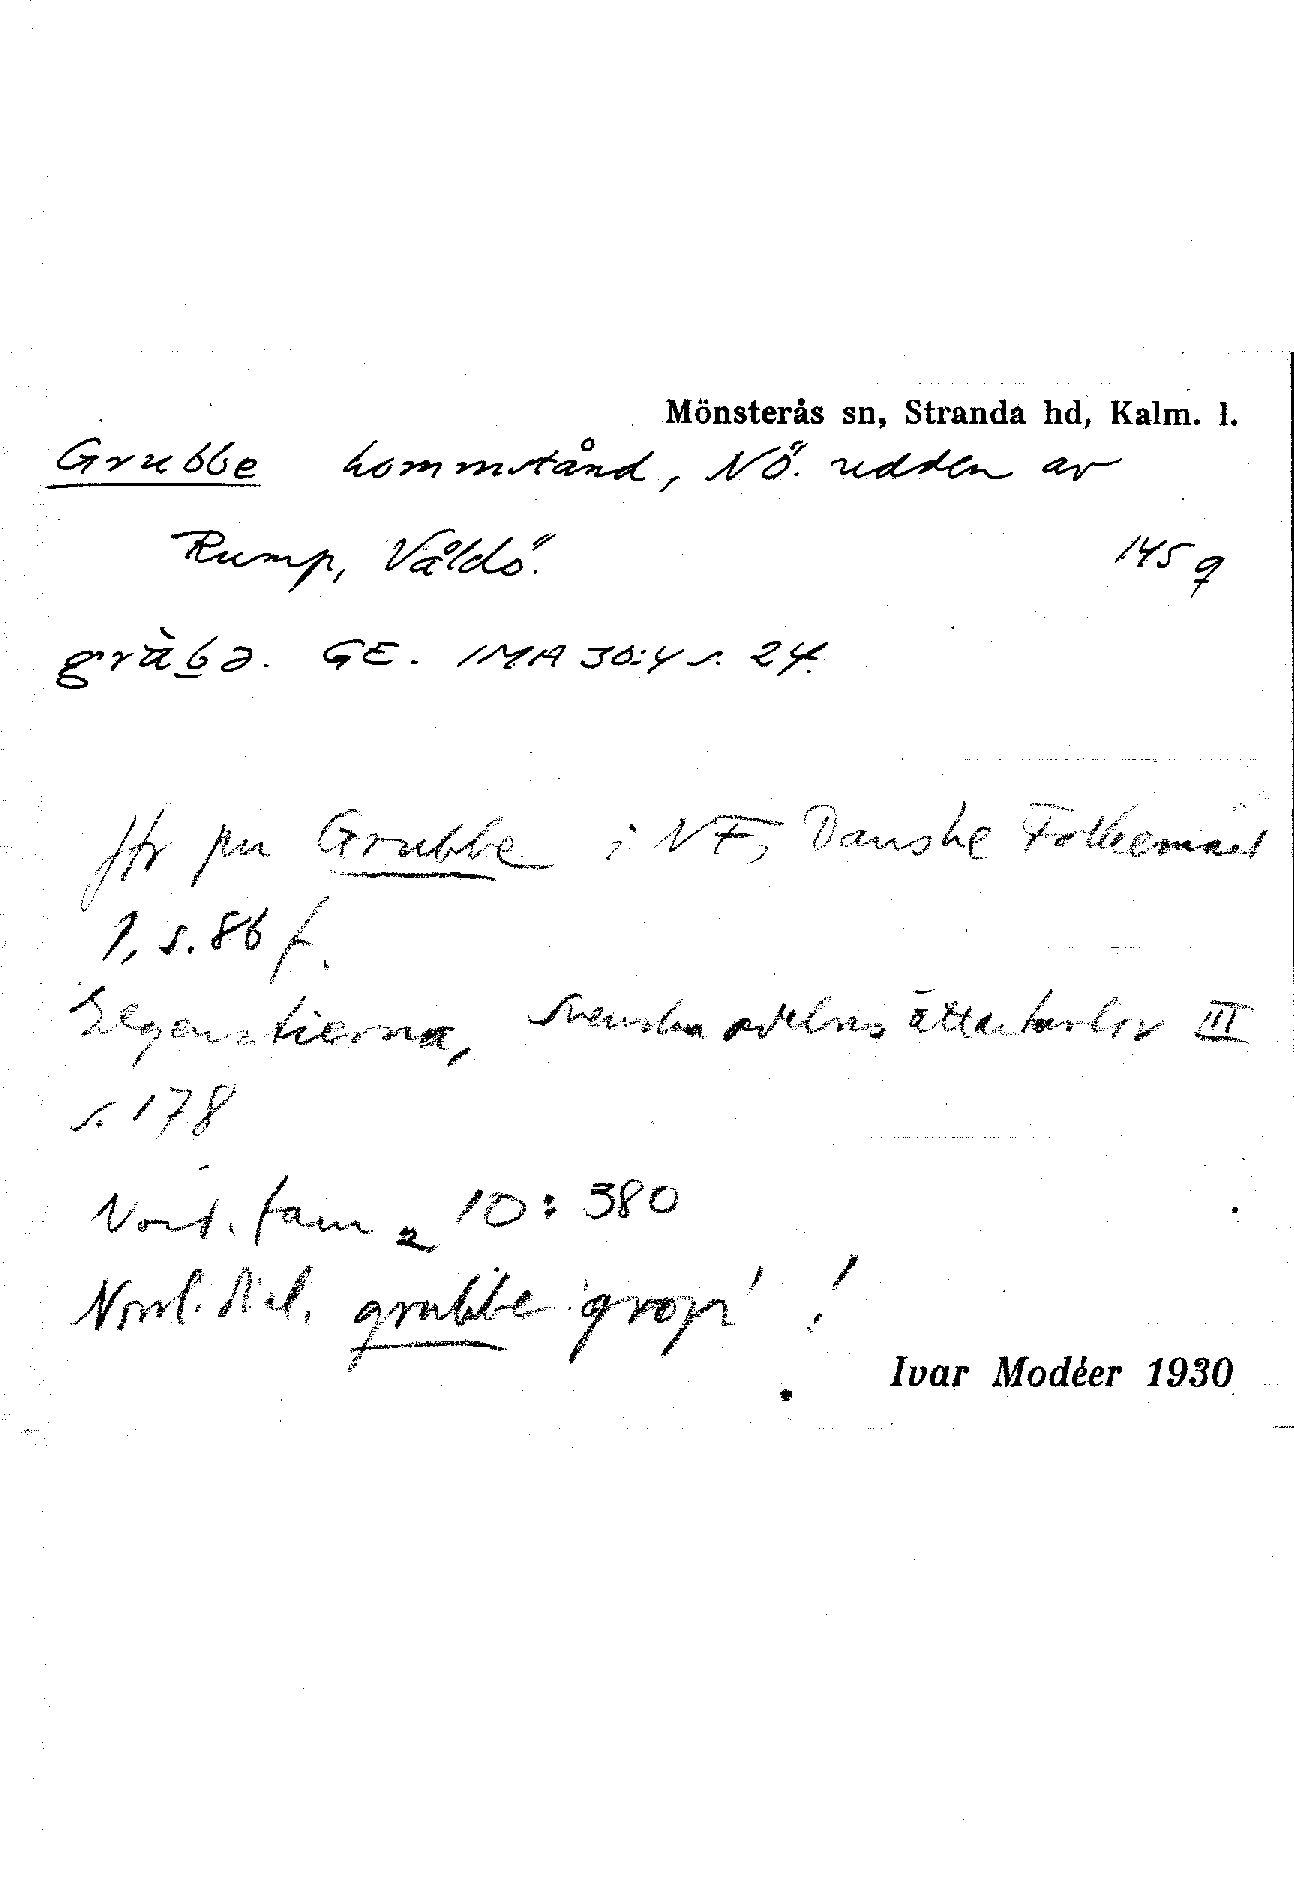 Mönsterås sn, Stranda hd, Kalm. l.
Grubbe hommstånd, NÖ. udden av
Rump, Våldö. 145 q
grùbə. GE. IMA 30:4 s. 24.
Jfr pn Grubbe i NF, Danske Folkeminder
1, s. 86 f.
Elgenstierna, Svenska adelns ättartavlor III
s. 178
Nord. fam 2 10: 380
Norrl. dial. grubbe 'grop' !
Ivar Modéer 1930